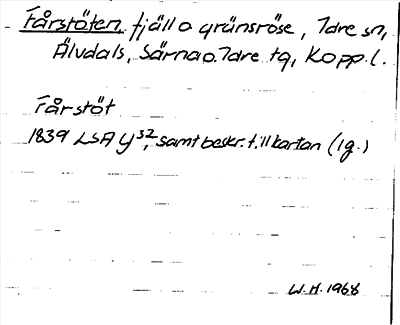 Fårstöten fjäll o gränsröse, Idre sn,
Älvdals, Särna o. Idre tg, Kopp.l.
Fårstöt
1839 LSA Y³², samt beskr. till kartan (1g.)
W.H. 1968